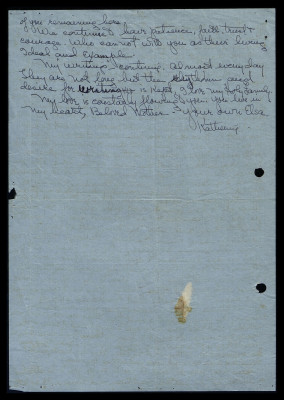 of you remaining here.
We continue to have patience, faith, trust &
courage. Who cannot with you as their living
Ideal and example.
My writings continue, almost everyday
They are not long but the rhythm and
desire for writing is there, I love my
My love is constantly flowing to you. You live in
my heart, Beloved Mother - Your own Elsa
Kathleen